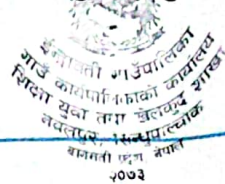 ईन्द्रावती गाउँपालिका
गाउँ कार्यपालिकाको कार्यालय
शिक्षा युवा तथा खेलकुद शाखा
नवलपुर, सिन्धुपाल्चोक
बागमती प्रदेश नेपाल
२०७३